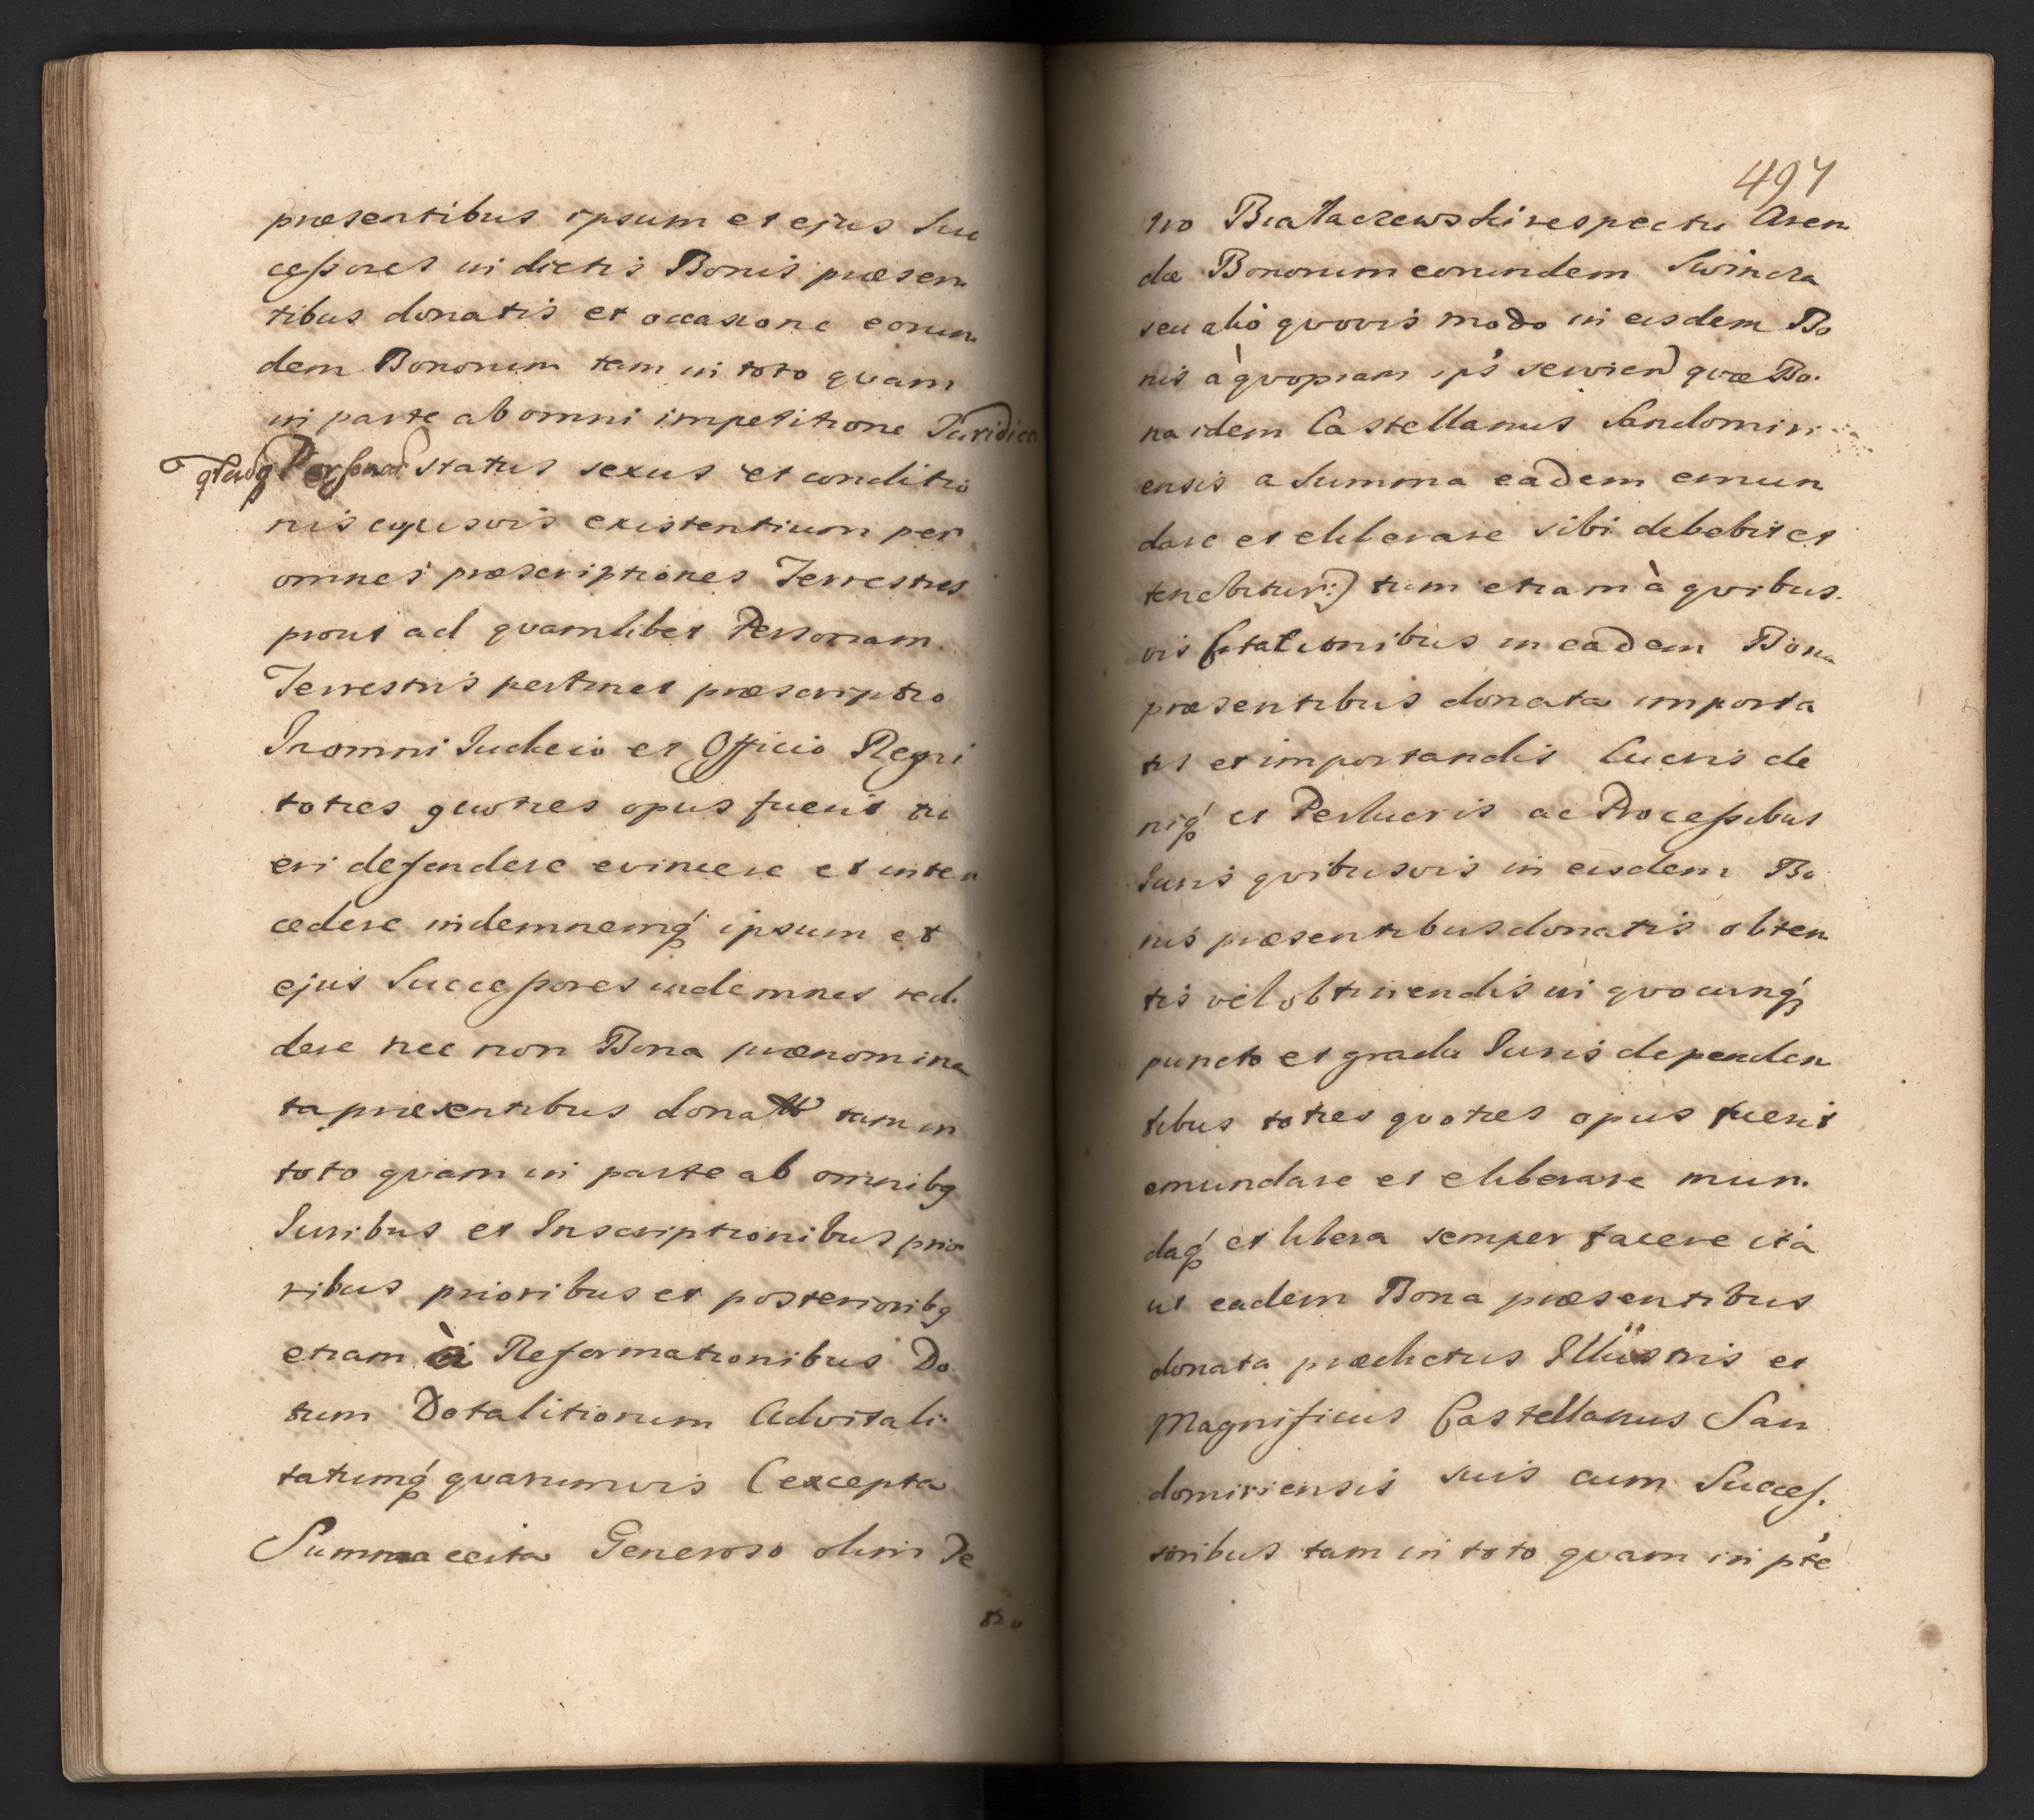 præsentibus ipsum et ejus Suc
ceßores in dictis Bonis præsen
tibus donatis et occasione eorun
dem Bonorum tam in toto quam
in parte ab omni impetitione Juridica
Personar status sexus et conditio
nis cujusvis existentium per
omnes præscriptiones Terrestres
prout ad quamlibet Personam
Terrestris pertinet præscriptio
In omni Judicio et Officio Regni
toties quoties opus fuerit tu
eri defendere evincere et inter
cedere indemnemq́ ipsum et
ejus Succeßores indemnes red.
dere nec non Bona prænomina
ta præsentibus donata tam in
toto qvam in parte ab omnibq
Juribus et Inscriptionibus prio
ribus prioribus et posterioribq
etiam à Reformationibus Do
tum Dotalitiorum Advitali
tatumq́ qvarumvis (excepta
Summa certa Generoso olim Pe
tro
497
tro Białaczewski respectu Aren
dæ Bonorum eorundem Swincza
seu alio qvovis modo in eisdem Bo
nis à qvopiam ips' serviend qvæ Bo.
na idem Castellanus Sandomiri
ensis a Summa eadem emun
dare et eliberare sibi debebit et
tenebitur:) tum etiam à qvibus.
vis in eadem Bona
præsentibus donata importa
tis et importandis Lucris de
niq́ et Perlucris ac Proceßibus
Juris qvibusvis in eisdem Bo
nis præsentibus donatis obten
tis vel obtinendis in qvocunq́
puncto et gradu Juris dependen
tibus toties qvoties opus fuerit
emundare et eliberare mun.
daq́ et libera semper facere ita
ut eadem Bona præsentibus
donata prædictus Illustris et
Magnificus Castellanus San
domiriensis suis cum Succes.
soribus tam in toto qvam in pte